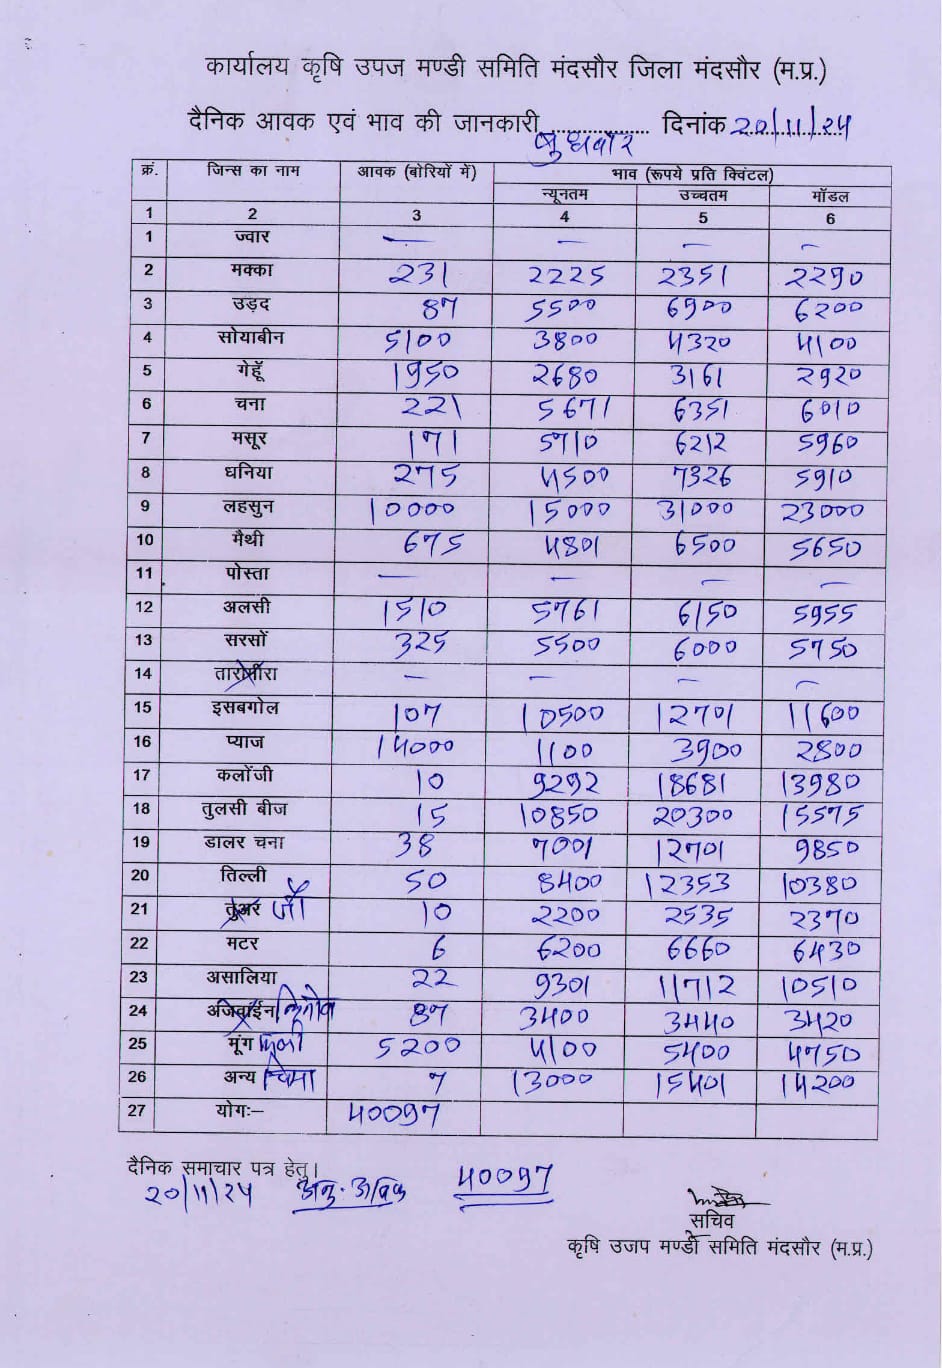 कार्यालय कृषि उपज मण्डी समिति मंदसौर जिला मंदसौर (म.प्र.)
दैनिक आवक एवं भाव की जानकारी.................. दिनांक 20/11/24
बुधवार
क्रं. जिन्स का नाम आवक (बोरियों में) भाव (रूपये प्रति क्विंटल)
न्यूनतम उच्चतम मॉडल
1 2 3 4 5 6
1 ज्वार — — — —
2 मक्का 231 2225 2351 2290
3 उड़द 87 5500 6900 6200
4 सोयाबीन 5100 3800 4320 4100
5 गेहूँ 1950 2680 3161 2920
6 चना 221 5671 6351 6010
7 मसूर 171 5710 6212 5960
8 धनिया 275 4500 7326 5910
9 लहसुन 10000 15000 31000 23000
10 मैथी 675 4801 6500 5650
11 पोस्ता — — — —
12 अलसी 1510 5761 6150 5955
13 सरसों 325 5500 6000 5750
14 तारामीरा — — — —
15 इसबगोल 107 10500 12701 11600
16 प्याज 14000 1100 3900 2800
17 कलोंजी 10 9292 18681 13980
18 तुलसी बीज 15 10850 20300 15575
19 डालर चना 38 7001 12701 9850
20 तिल्ली 50 8400 12353 10380
21 तुअर जौ 10 2200 2535 2370
22 मटर 6 6200 6660 6430
23 असालिया 22 9301 11712 10510
24 अजवाईन 87 3400 3440 3420
25 मूंग 5200 4100 5400 4750
26 अन्य चिया 7 13000 15401 14200
27 योगः– 40097
दैनिक समाचार पत्र हेतु। 40097
20/11/24
सचिव
कृषि उजप मण्डी समिति मंदसौर (म.प्र.)